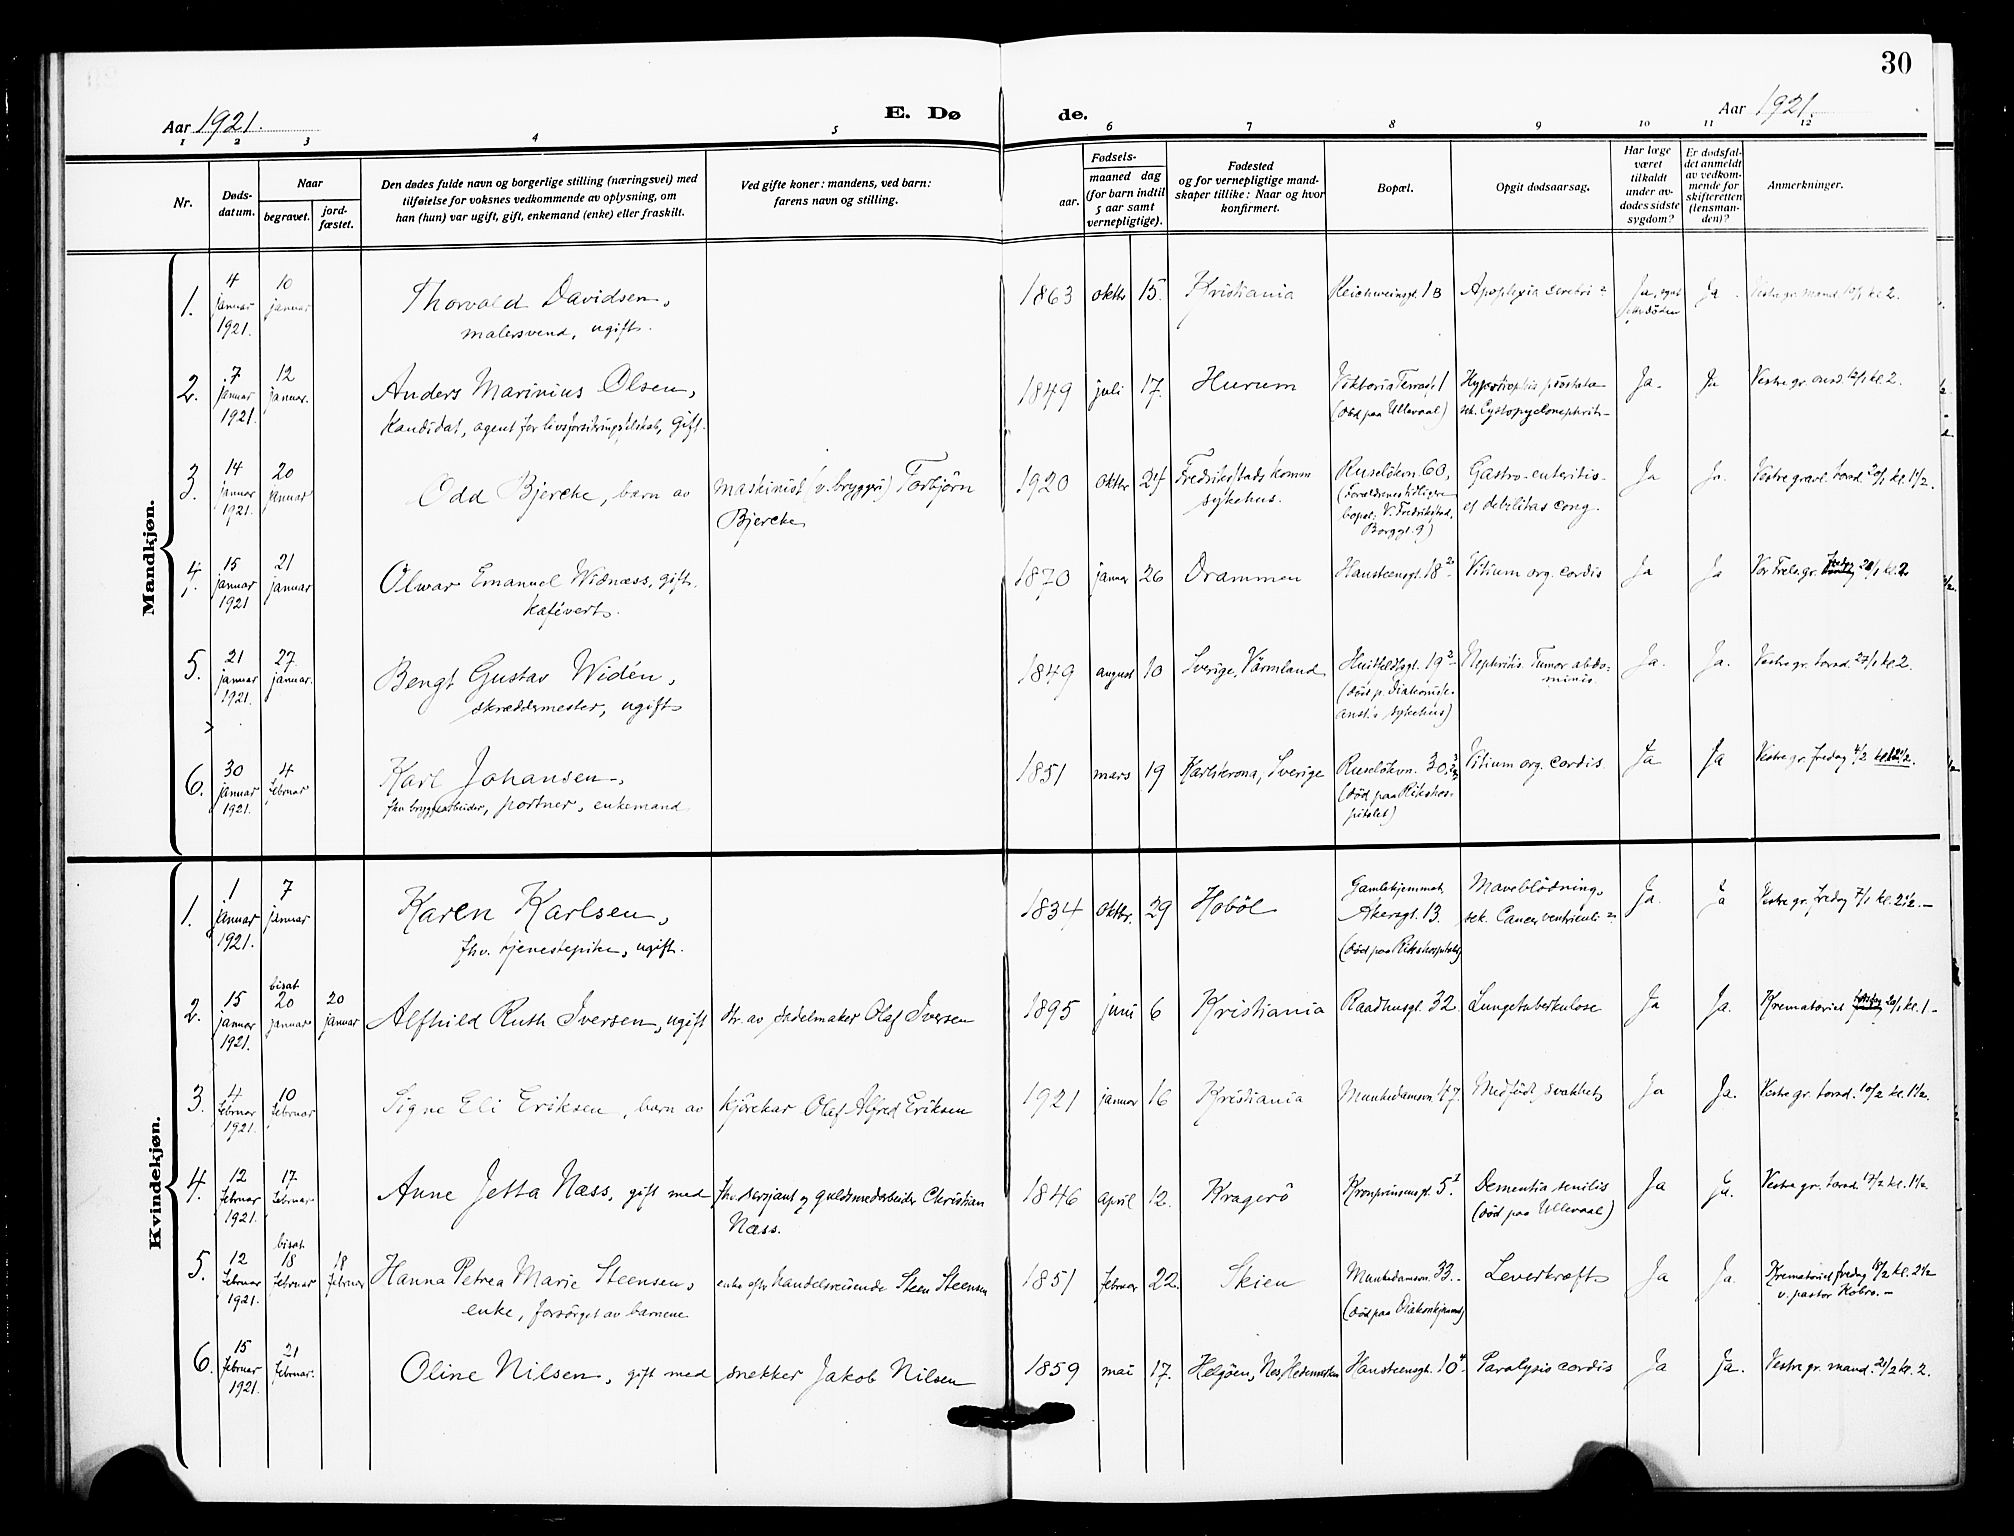 30
Aar 1921.
E. Dø
de.
Aar 1921.
1 2 3 4 5 6 7 8 9 10 11 12
Nr.
Døds-
datum.
Naar
begravet.
jord-
fæstet.
Den dødes fulde navn og borgerlige stilling (næringsvei) med
tilføielse for voksnes vedkommende av oplysning, om
han (hun) var ugift, gift, enkemand (enke) eller fraskilt.
Ved gifte koner: mandens, ved barn:
farens navn og stilling.
Fødsels-
aar.
maaned dag
(for barn indtil
5 aar samt
vernepligtige).
Fødested
og for vernepligtige mand-
skaper tillike: Naar og hvor
konfirmert.
Bopæl.
Opgit dødsaarsag.
Har læge
været
tilkaldt
under av-
dødes sidste
sygdom?
Er dødsfal-
det anmeldt
av vedkom-
mende for
skifteretten
(lensman-
den)?
Anmerkninger.
Mandkjøn.
1. 4 januar 1921. 10 januar
Thorvald Davidsen,
malersvend, ugift.
1863 oktbr 15. Kristiania
Reichweinsgt. 1 B
Apoplexia cerebri
Ja, Ja. Vestre gr. mand. 10/1 kl. 2.
2. 7 januar 1921. 12 januar.
Anders Marinius Olsen,
Kandidat, agent for livsforsikringsselskab, gift.
1849 juli 17. Hurum
Viktoria Terrasse 1
(død paa Ullevaal)
Hypertrophia prostatae
sek. Cystopyelonephrit.
Ja. Ja Vestre gr. onsd. 12/1 kl. 2.
3. 14 januar 1921. 20 januar
Odd Bjercke, barn av
maskinist (v. bryggeri) Torbjörn
Bjercke
1920 oktbr 24 Fredrikstads komm
sykehus.
Ruseløkvn. 60,
(Forældrenes tidligere
bopæl: V. Fredrikstad,
Borggt. 9)
Gastro-enteritis
et debilitas cong.
Ja Ja. Vestre gravl. torsd. 20/1 kl. 1 1/2.
4. 15 januar 1921 21 januar
Olwar Emanuel Widnæss, gift.
kafévert.
1870 januar 26 Drammen
Hansteensgt. 18
Vitium org. cordis
Ja Ja Vor Frels. gr. fredag 21/1 kl. 2
5. 21 januar 1921. 27. januar.
Bengt Gustav Widén,
skræddermester, ugift
1849 august 10 Sverige, Värmland
Huitfeldtsgt. 19
(død p. Diakonisse-
anst.s sykehus)
Nephritis. Tumor abdo-
minis.
Ja. Ja. Vestre gr. torsd. 27/1 kl. 2.
6. 30 januar 1921. 4 februar
Karl Johansen,
fhv. bryggearbeider, portner, enkemand
1851 mars 19 Karlskrona, Sverige
Ruseløkvn. 30
(død paa Rikshos-
pitalet)
Vitium org. cordis.
Ja Ja Vestre gr. fredag 4/2 kl. 2 1/2.
Kvindekjøn.
1. 1 januar 1921. 7 januar
Karen Karlsen,
fhv. tjenestepike, ugift.
1834 oktbr. 29 Hobøl
Gamlehjemmet
Akersgt. 13.
(død paa Rikshospitalet)
Maveblödning,
sek. Cancer ventriculi
Ja. Ja Vestre gr. fredag 7/1 kl. 2 1/2.
2. 15 januar 1921. bisat 20 januar 20 januar
Alfhild Ruth Iversen, ugift
dtr. av sadelmaker Olaf Iversen
1895 juni 6 Kristiania
Raadhusgt. 32.
Lungetuberkulose
Ja Ja. Krematoriet torsdag 20/1 kl. 1
3. 4 februar 1921. 10 februar
Signe Eli Eriksen, barn av
kjörekar Olaf Alfred Eriksen
1921 januar 16 Kristiania
Munkedamsvn. 47.
Medfødt svakhet
Ja Ja. Vestre gr. torsd. 10/2 kl. 1 1/2.
4. 12 februar 1921. 17 februar
Anne Jetta Næss, gift med
fhv. sersjant og guldsmedarbeider Christian
Næss.
1846 april 12. Kragerö
Kronprinsensgt. 5.
Dementia senilis
(død paa Ullevaal)
Ja Ja. Vestre gr. torsd. 17/2 kl. 1 1/2.
5. 12 februar 1921. bisat 18 februar 18 februar
Hanna Petrea Marie Steensen,
enke, forsörget av barnene
enke efter handelsreisende Steen Steensen
1851 februar 22. Skien
Munkedamsvn. 33.
(død paa Diakonhjemmet)
Leverkræft
Ja Ja. Krematoriet fredag 18/2 kl. 2 1/2
v. pastor Kobro.
6. 15 februar 1921. 21 februar.
Oline Nilsen, gift med
snekker Jakob Nilsen
1859 mai 17. Helgöen, Nes, Hedemarken
Hansteensgt. 10
Paralysis cordis
Ja Ja. Vestre gr. mand. 21/2 kl. 2.